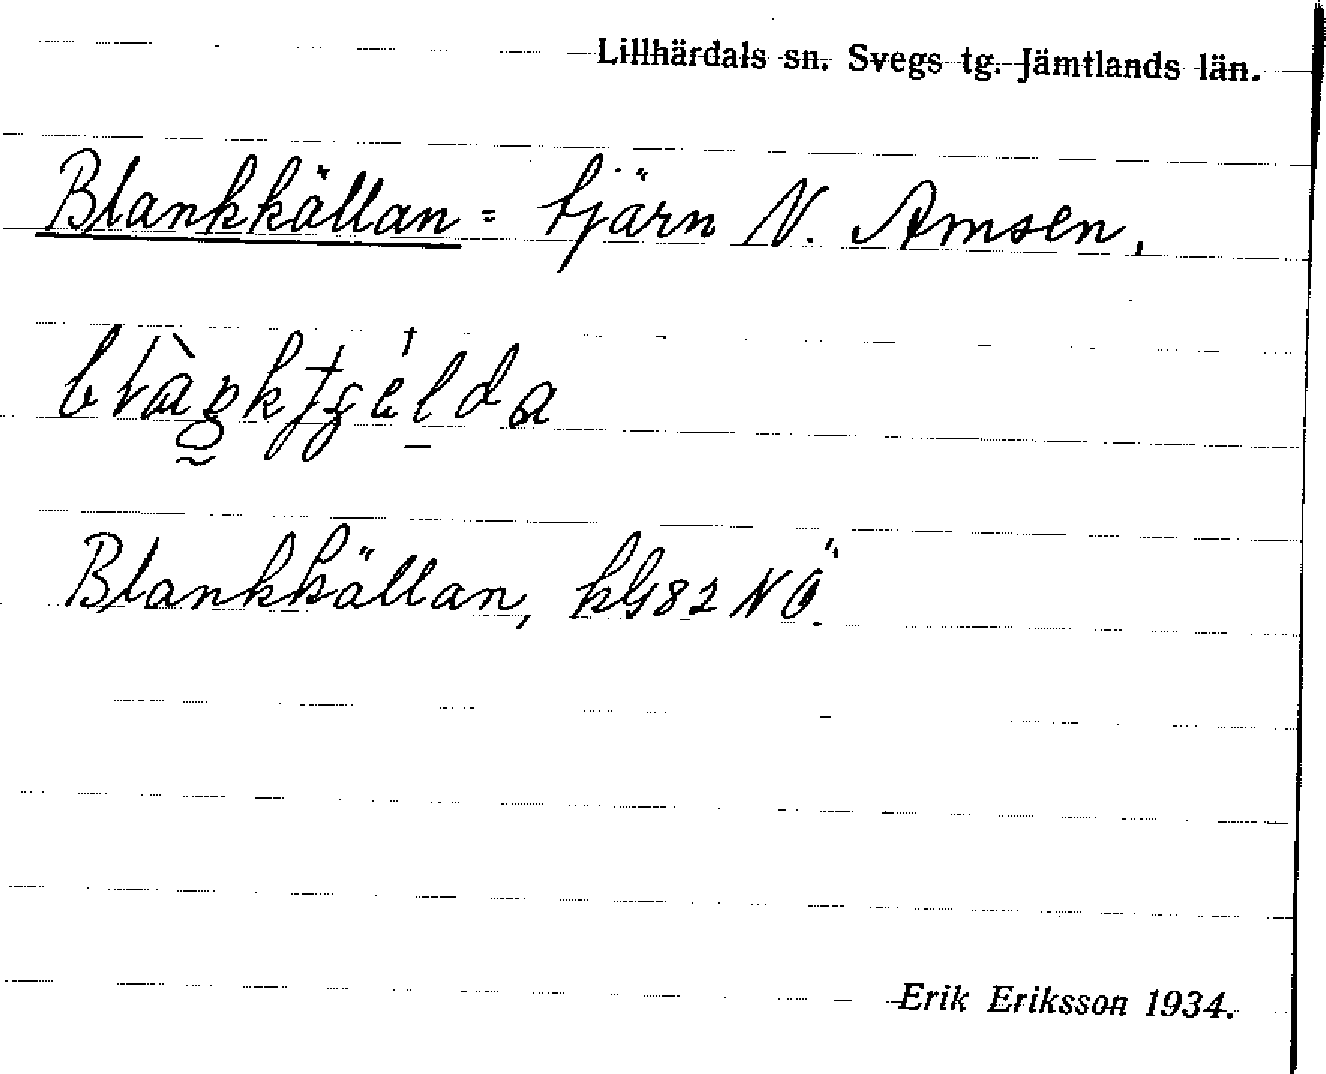 Lillhärdals sn. Svegs tg. Jämtlands län.
Blankkällan = tjärn N. Amsen,
Blankkällan, kG82 NÖ.
Erik Eriksson 1934.